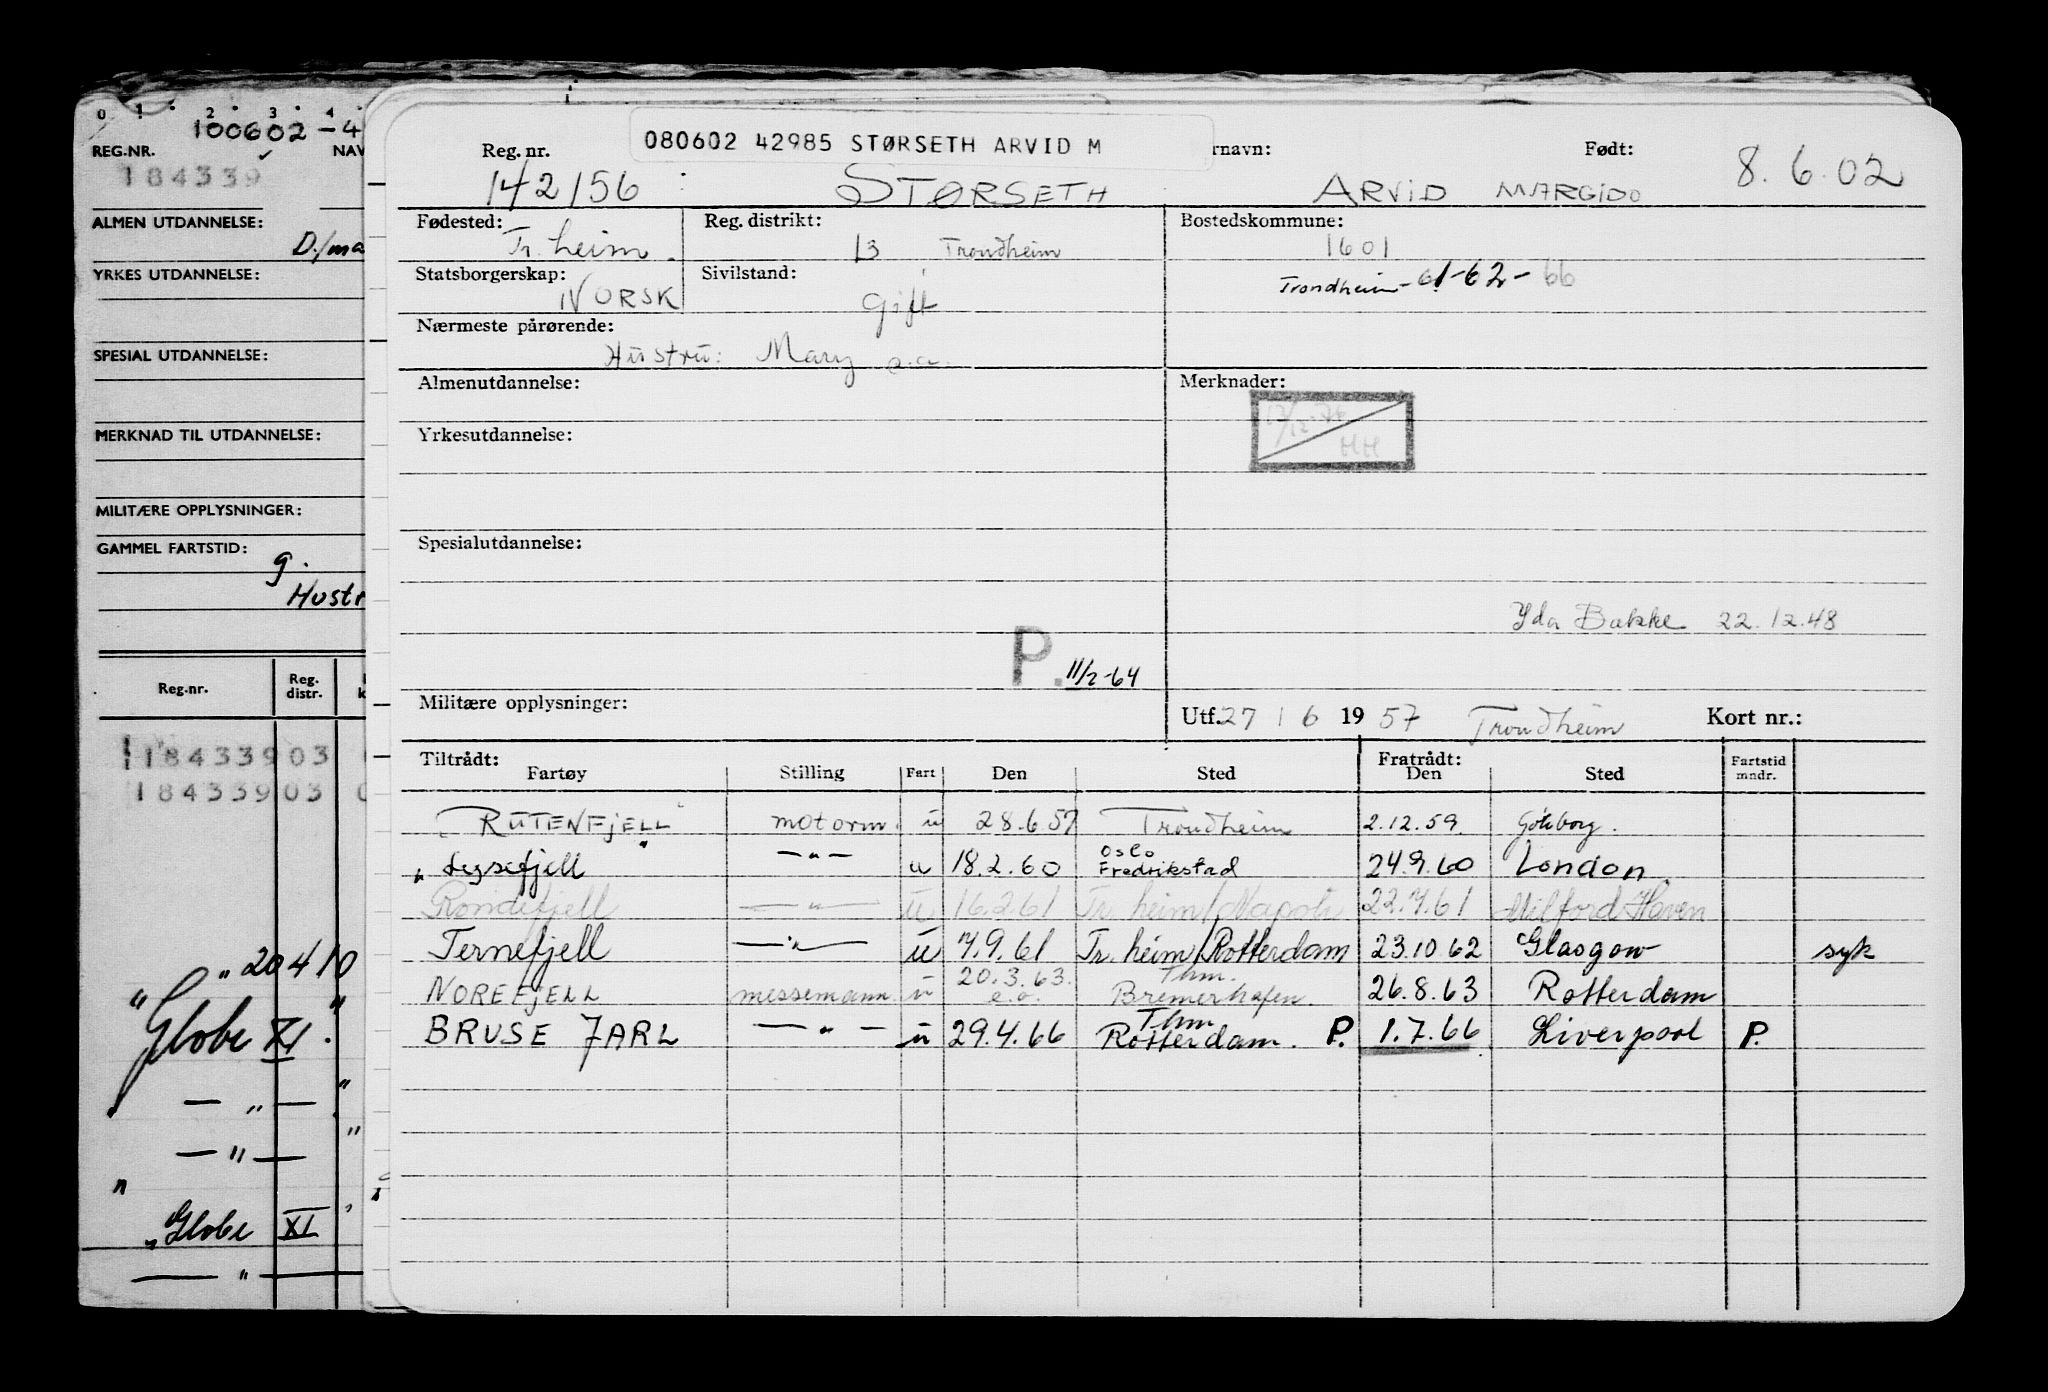 0 1 2 3 4
100602-4
REG.NR. NAV
184339
ALMEN UTDANNELSE:
D./ma
YRKES UTDANNELSE:
SPESIAL UTDANNELSE:
MERKNAD TIL UTDANNELSE:
MILITÆRE OPPLYSNINGER:
GAMMEL FARTSTID:
g.
Hustr
Reg.nr. Reg. distr. k
118433903 0
18433903 0
" 20410
"Globe XI "
— " —
— " —
"Globe XI
— " —
080602 42985 STØRSETH ARVID M
Reg. nr. rnavn: Født:
142156 STØRSETH ARVID MARGIDO 8.6.02
Fødested: Reg. distrikt: Bostedskommune:
Tr.heim. 13 Trondheim 1601
Statsborgerskap: Sivilstand: Trondheim-61-62-66
NORSK Gift
Nærmeste pårørende:
Hustru: Mary s.a.
Almenutdannelse: Merknader:
13/12-76
HH
Yrkesutdannelse:
Spesialutdannelse:
Yda Bakke 22.12.48
P. 11/2-64
Militære opplysninger: Utf. 27/6 1957 Trondheim Kort nr.:
Tiltrådt: Fratrådt: Fartstid
Fartøy Stilling Fart Den Sted Den Sted mndr.
"RUTENFJELL" motorm. u 28.6.57 Trondheim 2.12.59. Göteborg.
"Lysefjell" —"— u 18.2.60 Oslo Fredrikstad 24.9.60 London.
Rondefjell —"— u 16.2.61 Tr.heim/Napoli 22.7.61 Milford Haven
Ternefjell —"— u 7.9.61 Tr.heim/Rotterdam 23.10.62 Glasgow syk
NOREFJELL messemann. u 20.3.63. e.o. Thm. Bremerhafen. 26.8.63 Rotterdam
BRUSE JARL —"— u 29.4.66 Thm Rotterdam. P. 1.7.66 Liverpool P.